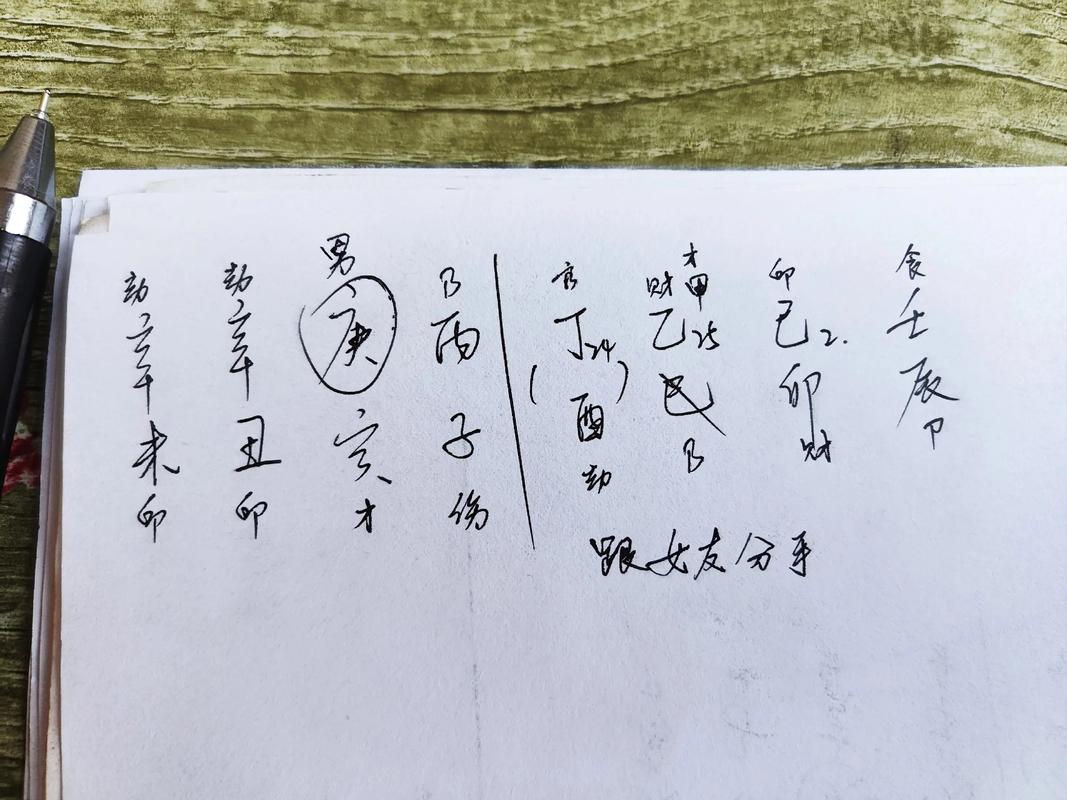 劫 劫 男 官 财 才 甲 卯 食
辛 辛 庚 丙 丁24 乙25 己2. 壬
未 丑 亥 子 (酉) 巳 卯 辰
卯 卯 才 伤 劫 财 卩
跟女友分手